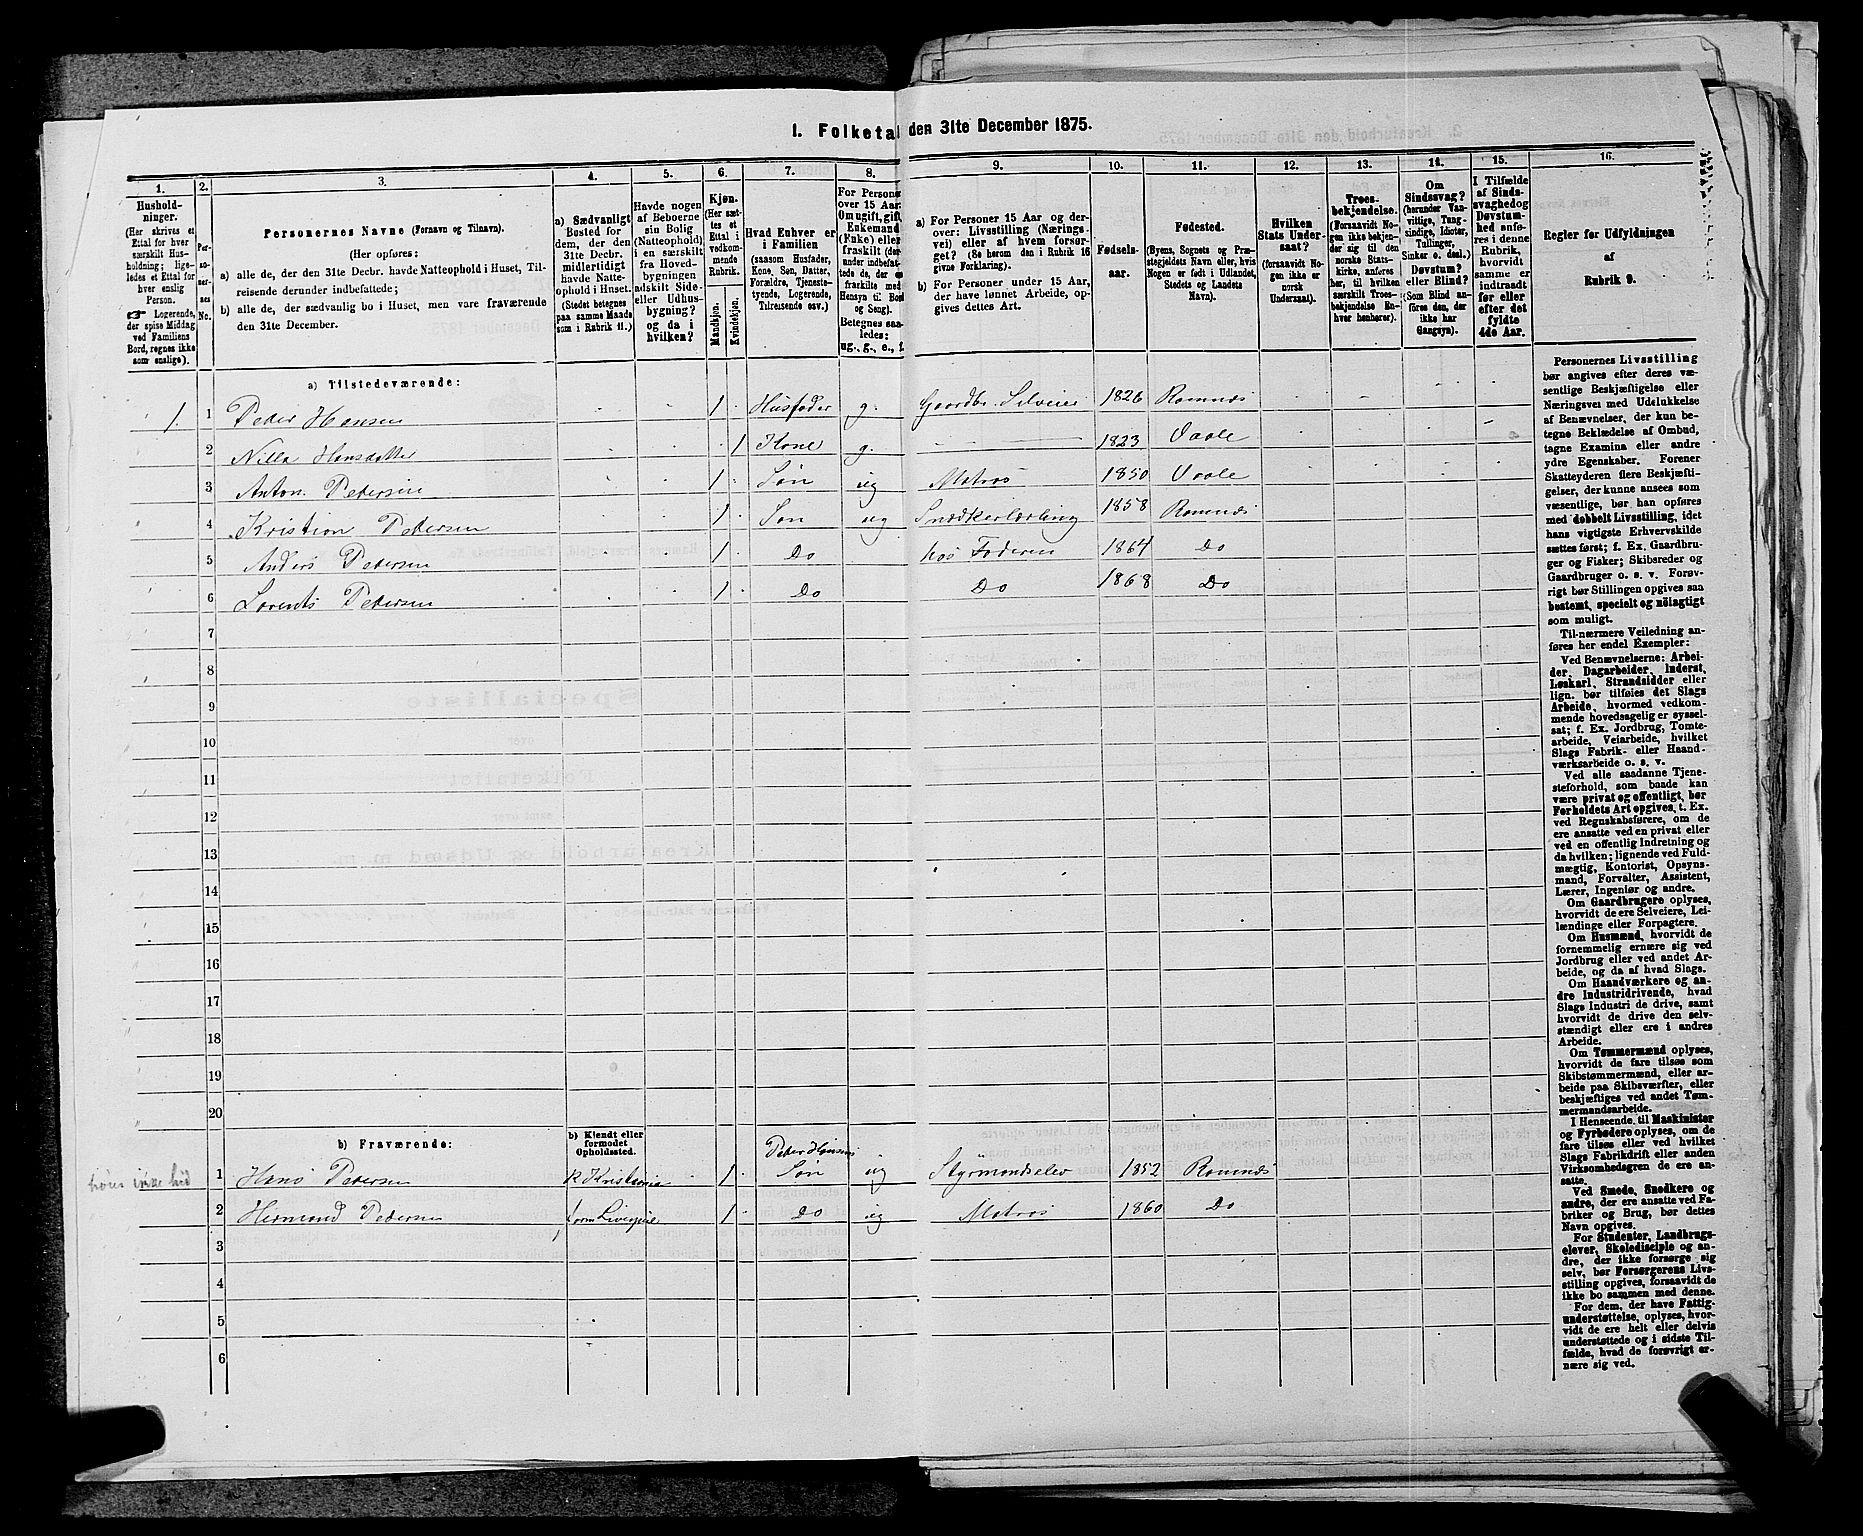 1. Folketal den 31te December 1875.
1. 2. 3. 4. 5. 6. 7. 8. 9. 10. 11. 12. 13. 14. 15. 16.
Hushold-
ninger.
(Her skrives et
Ettal for hver
særskilt Hus-
holdning; lige-
ledes et Ettal for
hver enslig
Person.
☞ Logerende,
der spise Middag
ved Familiens
Bord, regnes ikke
som enslige).
Per-
so-
ner-
nes
No.
Personernes Navne (Fornavn og Tilnavn).
(Her opføres:
a) alle de, der den 31te Decbr. havde Natteophold i Huset, Til-
reisende derunder indbefattede;
b) alle de, der sædvanlig bo i Huset, men vare fraværende
den 31te December.
a) Sædvanligt
Bosted for
dem, der den
31te Decbr.
midlertidigt
havde Natte-
ophold i Huset.
(Stedet betegnes
paa samme Maade
som i Rubrik 11.)
Havde nogen
af Beboerne
sin Bolig
(Natteophold)
i en særskilt
fra Hoved-
bygningen
adskilt Side-
eller Udhus-
bygning?
og da i
hvilken?
Kjøn.
(Her sæt-
tes et
Ettal i
vedkom-
mende
Rubrik.
Mandkjøn.
Kvindekjøn.
Hvad Enhver er
i Familien
(saasom Husfader,
Kone, Søn, Datter,
Forældre, Tjeneste-
tyende, Logerende,
Tilreisende osv.)
For Personer
over 15 Aar:
Om ugift, gift,
Enkemand
(Enke) eller
fraskilt (der-
under indbefat-
tede de, der ere
frarskilte med
Hensyn til Bord
og Seng).
Betegnes saa-
ledes:
ug., g., e., f.
a) For Personer 15 Aar og der-
over: Livsstilling (Nærings-
vei) eller af hvem forsør-
get? (Se herom den i Rubrik 16
givne Forklaring).
b) For Personer under 15 Aar,
der have lønnet Arbeide, op-
gives dettes Art.
Fødsels-
aar.
Fødested.
(Byens, Sognets og Præ-
stegjeldets Navn eller, hvis
Nogen er født i Udlandet,
Stedets og Landets
Navn).
Hvilken
Stats Under-
saat?
(forsaavidt No-
gen ikke er
norsk
Undersaat).
Troes-
bekjendelse.
(Forsaavidt No-
gen ikke bekjen-
der sig til den
norske Stats-
kirke, anføres
her, til hvilken
særskilt Troes-
bekjendelse En-
hver henhører).
Om
Sindssvag?
(herunder Van-
vittige, Tung-
sindige, Idioter,
Tullinger,
Sinker o. desl.).
Døvstum?
eller Blind?
(Som Blind an-
føres den, der
ikke har
Gangsyn).
I Tilfælde
af Sinds-
svaghed og
Døvstum-
hed anfø-
res i denne
Rubrik,
hvorvidt
samme er
indtraadt
før eller
efter det
fyldte
4de Aar.
Regler for Udfyldningen
af
Rubrik 9.
a) Tilstedeværende:
1. 1 Peder Hansen 1 Husfader g. Gaardbr. Selveier 1826 Ramnæs
2 Nilla Hansdatter 1 Kone g. 1823 Vaale
3 Anton Pedersen 1 Søn ug Matros 1850 Vaale
4 Kristian Pedersen 1 Søn ug Snedkerlærling 1858 Ramnæs
5 Anders Pedersen 1 Do hos Faderen 1864 Do
6 Lorents Pedersen 1 Do Do 1868 Do
7
8
9
10
11
12
13
14
15
16
17
18
19
20
b) Fraværende:
b) Kjendt eller
formodet
Opholdssted.
Peder Hansens
1 Hans Pedersen K Kristiania 1 Søn ug Styrmandselev 1852 Ramnæs
2 Hermand Pedersen 1 Do ug Matros 1860 Do
3
4
5
6
Personernes Livsstilling
bør angives efter deres væ-
sentlige Beskjæftigelse eller
Næringsvei med Udelukkelse
af Benævnelser, der kun be-
tegne Beklædelse af Ombud,
tagne Examina eller andre
ydre Egenskaber. Forener
Skatteyderen flere Beskjæfti-
gelser, der kunne ansees som
væsentlige, bør han opføres
med dobbelt Livsstilling, idet
hans vigtigste Erhvervskilde
sættes først; f. Ex. Gaardbru-
ger og Fisker; Skibsreder og
Gaardbruger o. s. v. Forøv-
rigt bør Stillingen opgives saa
bestemt, specielt og nöiagtigt
som muligt.
Til nærmere Veiledning an-
føres her endel Exempler:
Ved Benævnelserne: Arbei-
der, Dagarbeider, Inderst,
Løskarl, Strandsidder eller
lign. bør tilføies det Slags
Arbeide, hvormed vedkom-
mende hovedsagelig er syssel-
sat; f. Ex. Jordbrug, Tomte-
arbeide, Veiarbeide, hvilket
Slags Fabrik- eller Haand-
værksarbeide o. s. v.
Ved alle saadanne Tjene-
steforhold, som baade kan
være privat og offentligt, bør
Forholdets Art opgives, t. Ex.
ved Regnskabsførere, om de
ere ansatte ved en privat eller
ved en offentlig Indretning og
da hvilken; lignende ved Fuld-
mægtig, Kontorist, Opsyns-
mand, Forvalter, Assistent,
Lærer, Ingeniør og andre.
Om Gaardbrugere oplyses,
hvorvidt de ere Selveiere, Lei-
lændinge eller Forpagtere.
Om Husmænd, hvorvidt de
fornemmelig ernære sig ved
Jordbrug eller ved andet Ar-
beide, og da af hvad Slags.
Om Haandværkere og an-
dre Industridrivende, hvad
Slags Industri de drive, samt
hvorvidt de drive den selv-
stændigt eller ere i andres
Arbeide.
Om Tømmermænd oplyses,
hvorvidt de fare tilsøs som
Skibstømmermænd, eller ar-
beide paa Skibsværfter, eller
beskjæftiges ved andet Tøm-
mermandsarbeide.
I Henseende til Maskinister
og Fyrbødere oplyses, om de
fare tilsøs eller ved hvilket
Slags Fabrikdrift eller anden
Virksomhedsgren de ere an-
satte.
Ved Smede, Snedkere og
andre, der ere ansatte ved Fa-
briker og Brug, bør dettes
Navn opgives.
For Studenter, Landbrugs-
elever, Skoledisciple og an-
dre, der ikke forsørge sig
selv, bør Forsørgerens Livs-
stilling opgives, forsaavidt de
ikke bo sammen med denne.
For dem, der have Fattig-
understøttelse, oplyses, hvor-
vidt de ere helt eller delvis
understøttede og i sidste Til-
fælde, hvad de forøvrigt er-
nære sig ved.